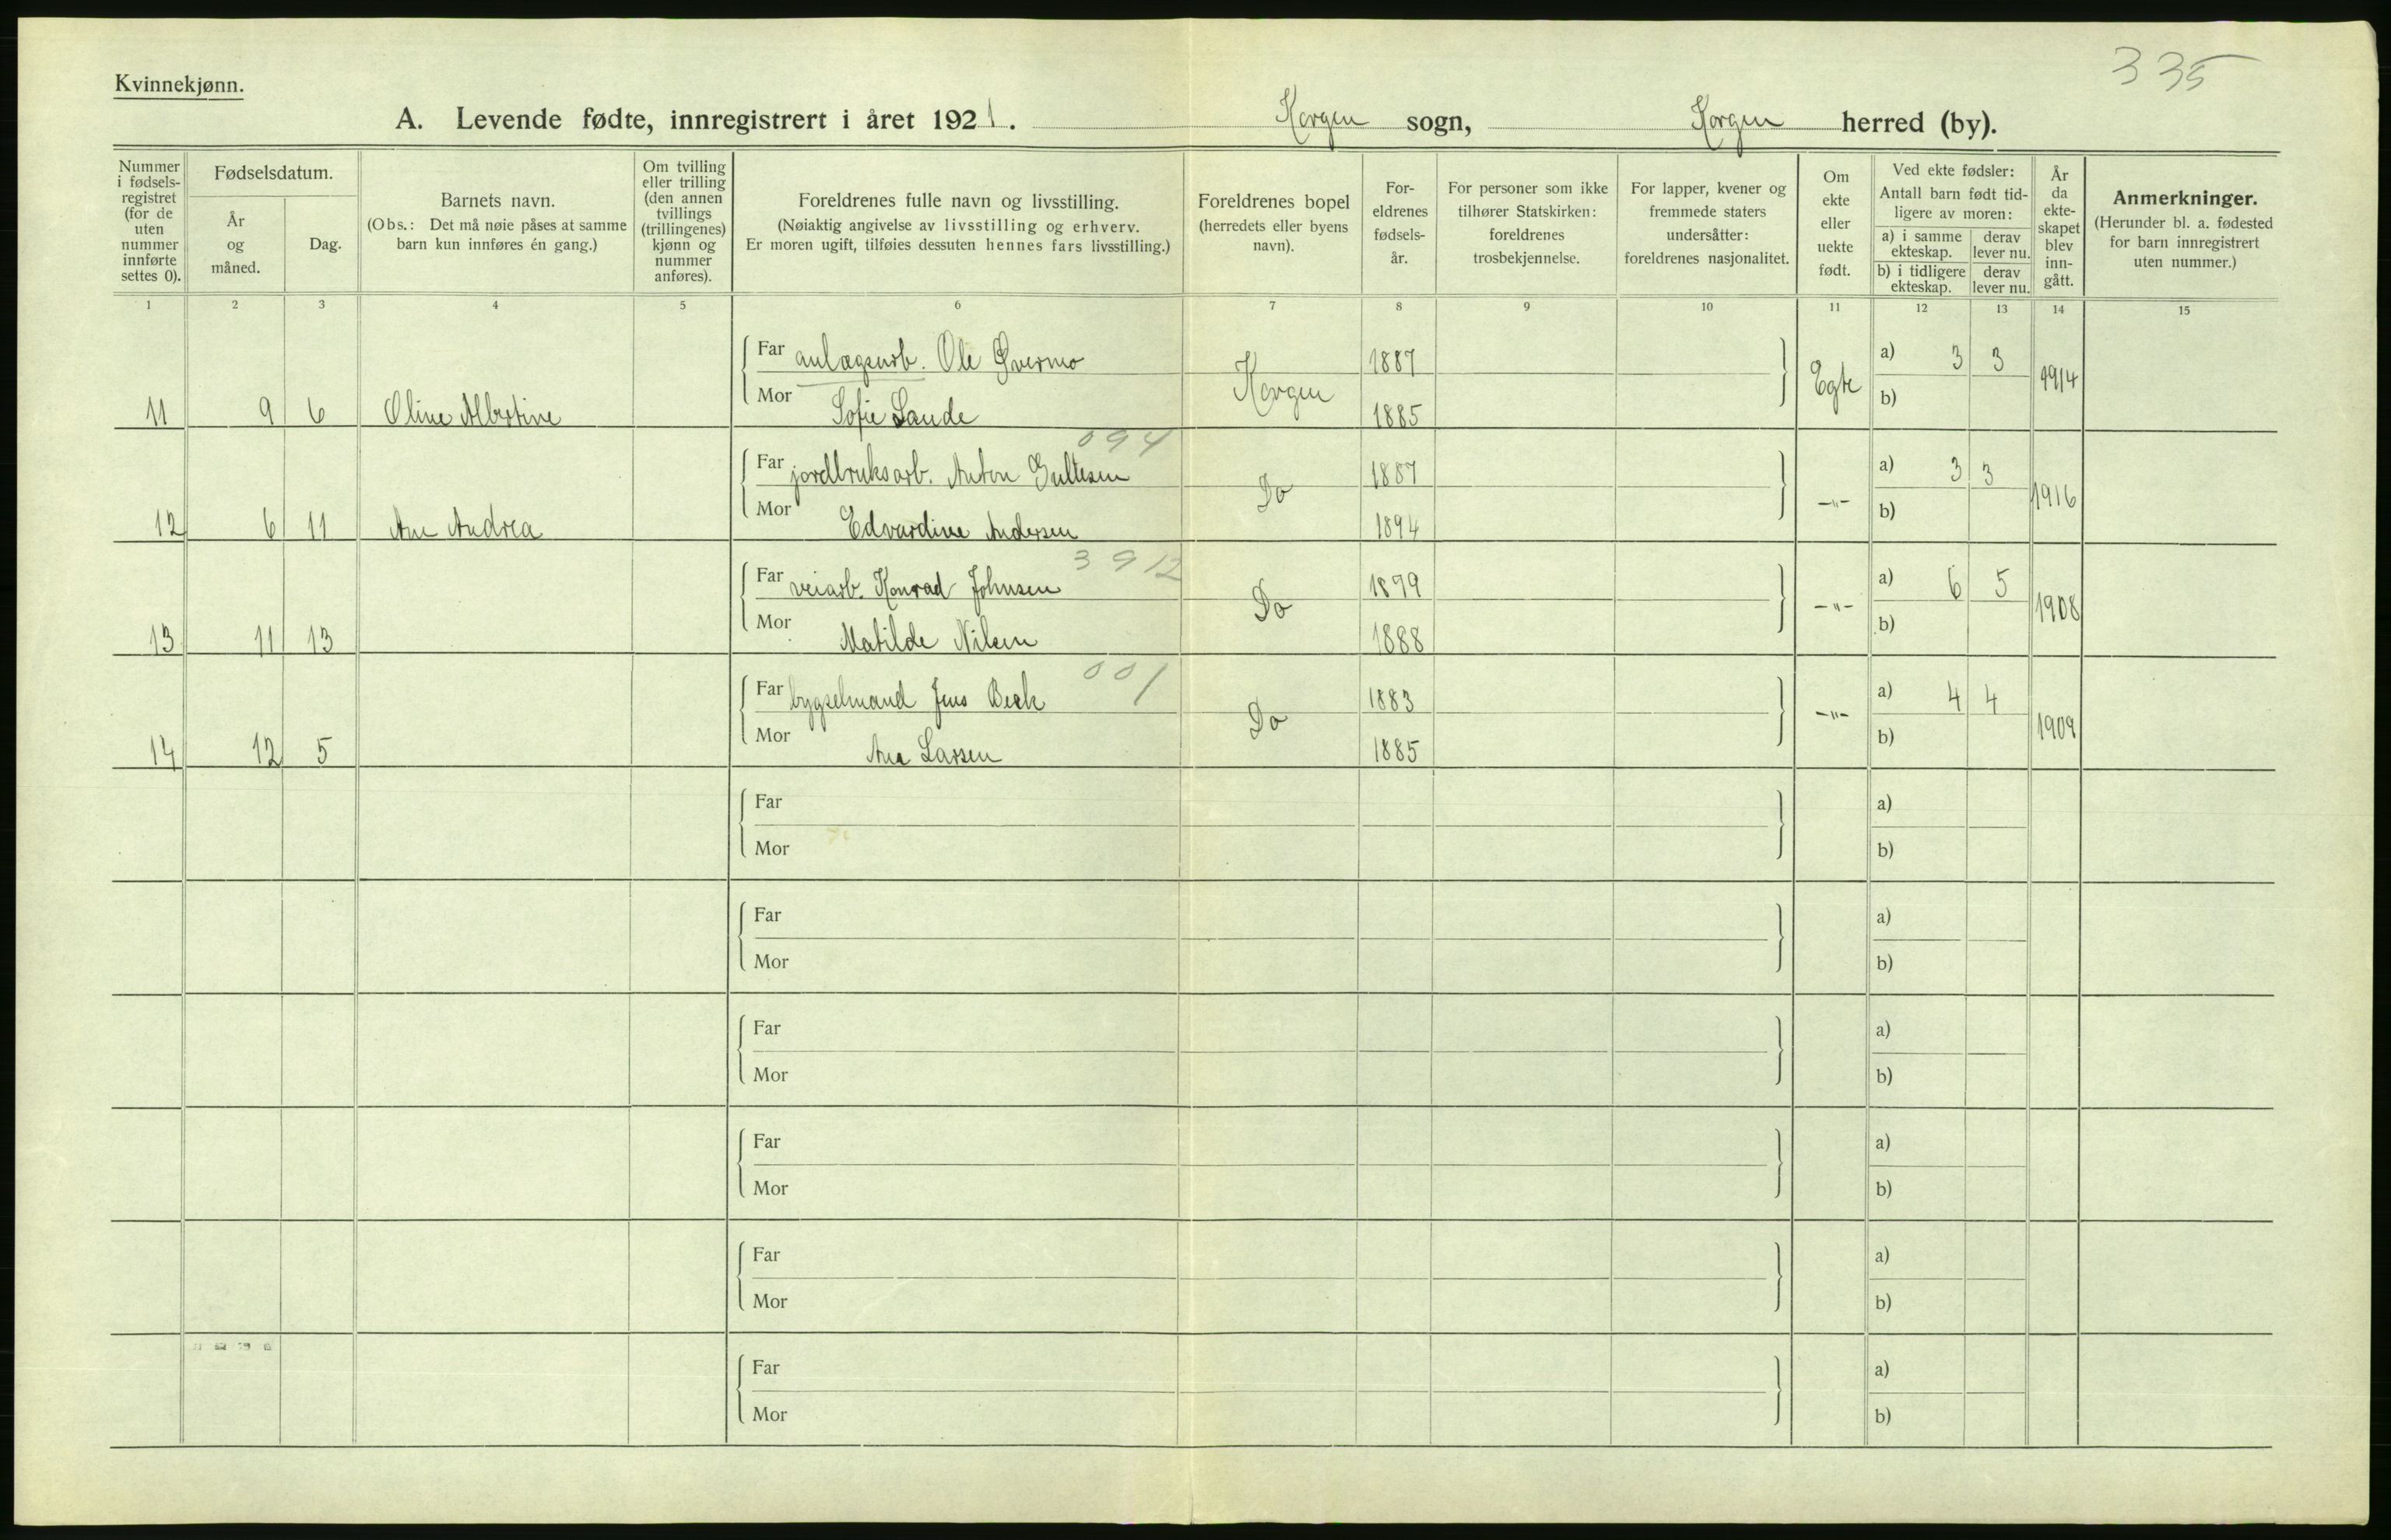 335
Kvinnekjønn.
A. Levende fødte, innregistrert i året 1921. Korgen sogn, Korgen herred (by).
Nummer i fødsels-registret (for de uten nummer innførte settes 0).
Fødselsdatum.
År og måned.
Dag.
Barnets navn.
(Obs.: Det må nøie påses at samme barn kun innføres én gang.)
Om tvilling eller trilling (den annen tvillings (trillingenes) kjønn og nummer anføres).
Foreldrenes fulle navn og livsstilling.
(Nøiaktig angivelse av livsstilling og erhverv.
Er moren ugift, tilføies dessuten hennes fars livsstilling.)
Foreldrenes bopel
(herredets eller byens navn).
For-eldrenes fødsels-år.
For personer som ikke tilhører Statskirken: foreldrenes trosbekjennelse.
For lapper, kvener og fremmede staters undersåtter: foreldrenes nasjonalitet.
Om ekte eller uekte født.
Ved ekte fødsler:
Antall barn født tid-ligere av moren:
a) i samme ekteskap.
derav lever nu.
b) i tidligere ekteskap.
derav lever nu.
År da ekte-skapet blev inn-gått.
Anmerkninger.
(Herunder bl. a. fødested for barn innregistrert uten nummer.)
1 2 3 4 5 6 7 8 9 10 11 12 13 14 15
Far anlægsarb. Ole Øvermo 1887 a) 3 3
11 9 6 Oline Albertine Mor Sofie Lande Korgen 1885 Egte b) 1914
094
Far jordbruksarb. Anton 1887 a) 3 3
12 6 11 Ane Andrea Mor Edvardine Andersen Do 1894 -"- b) 1916
3 9 12
Far veiarb. Konrad Johnsen 1879 a) 6 5
13 11 13 Mor Matilde Nilsen Do 1888 -"- b) 1908
001
Far bygselmand Jens Beck 1883 a) 4 4
14 12 5 Mor Ane Larsen Do 1885 -"- b) 1909
Far a)
Mor b)
Far a)
Mor b)
Far a)
Mor b)
Far a)
Mor b)
Far a)
Mor b)
Far a)
Mor b)